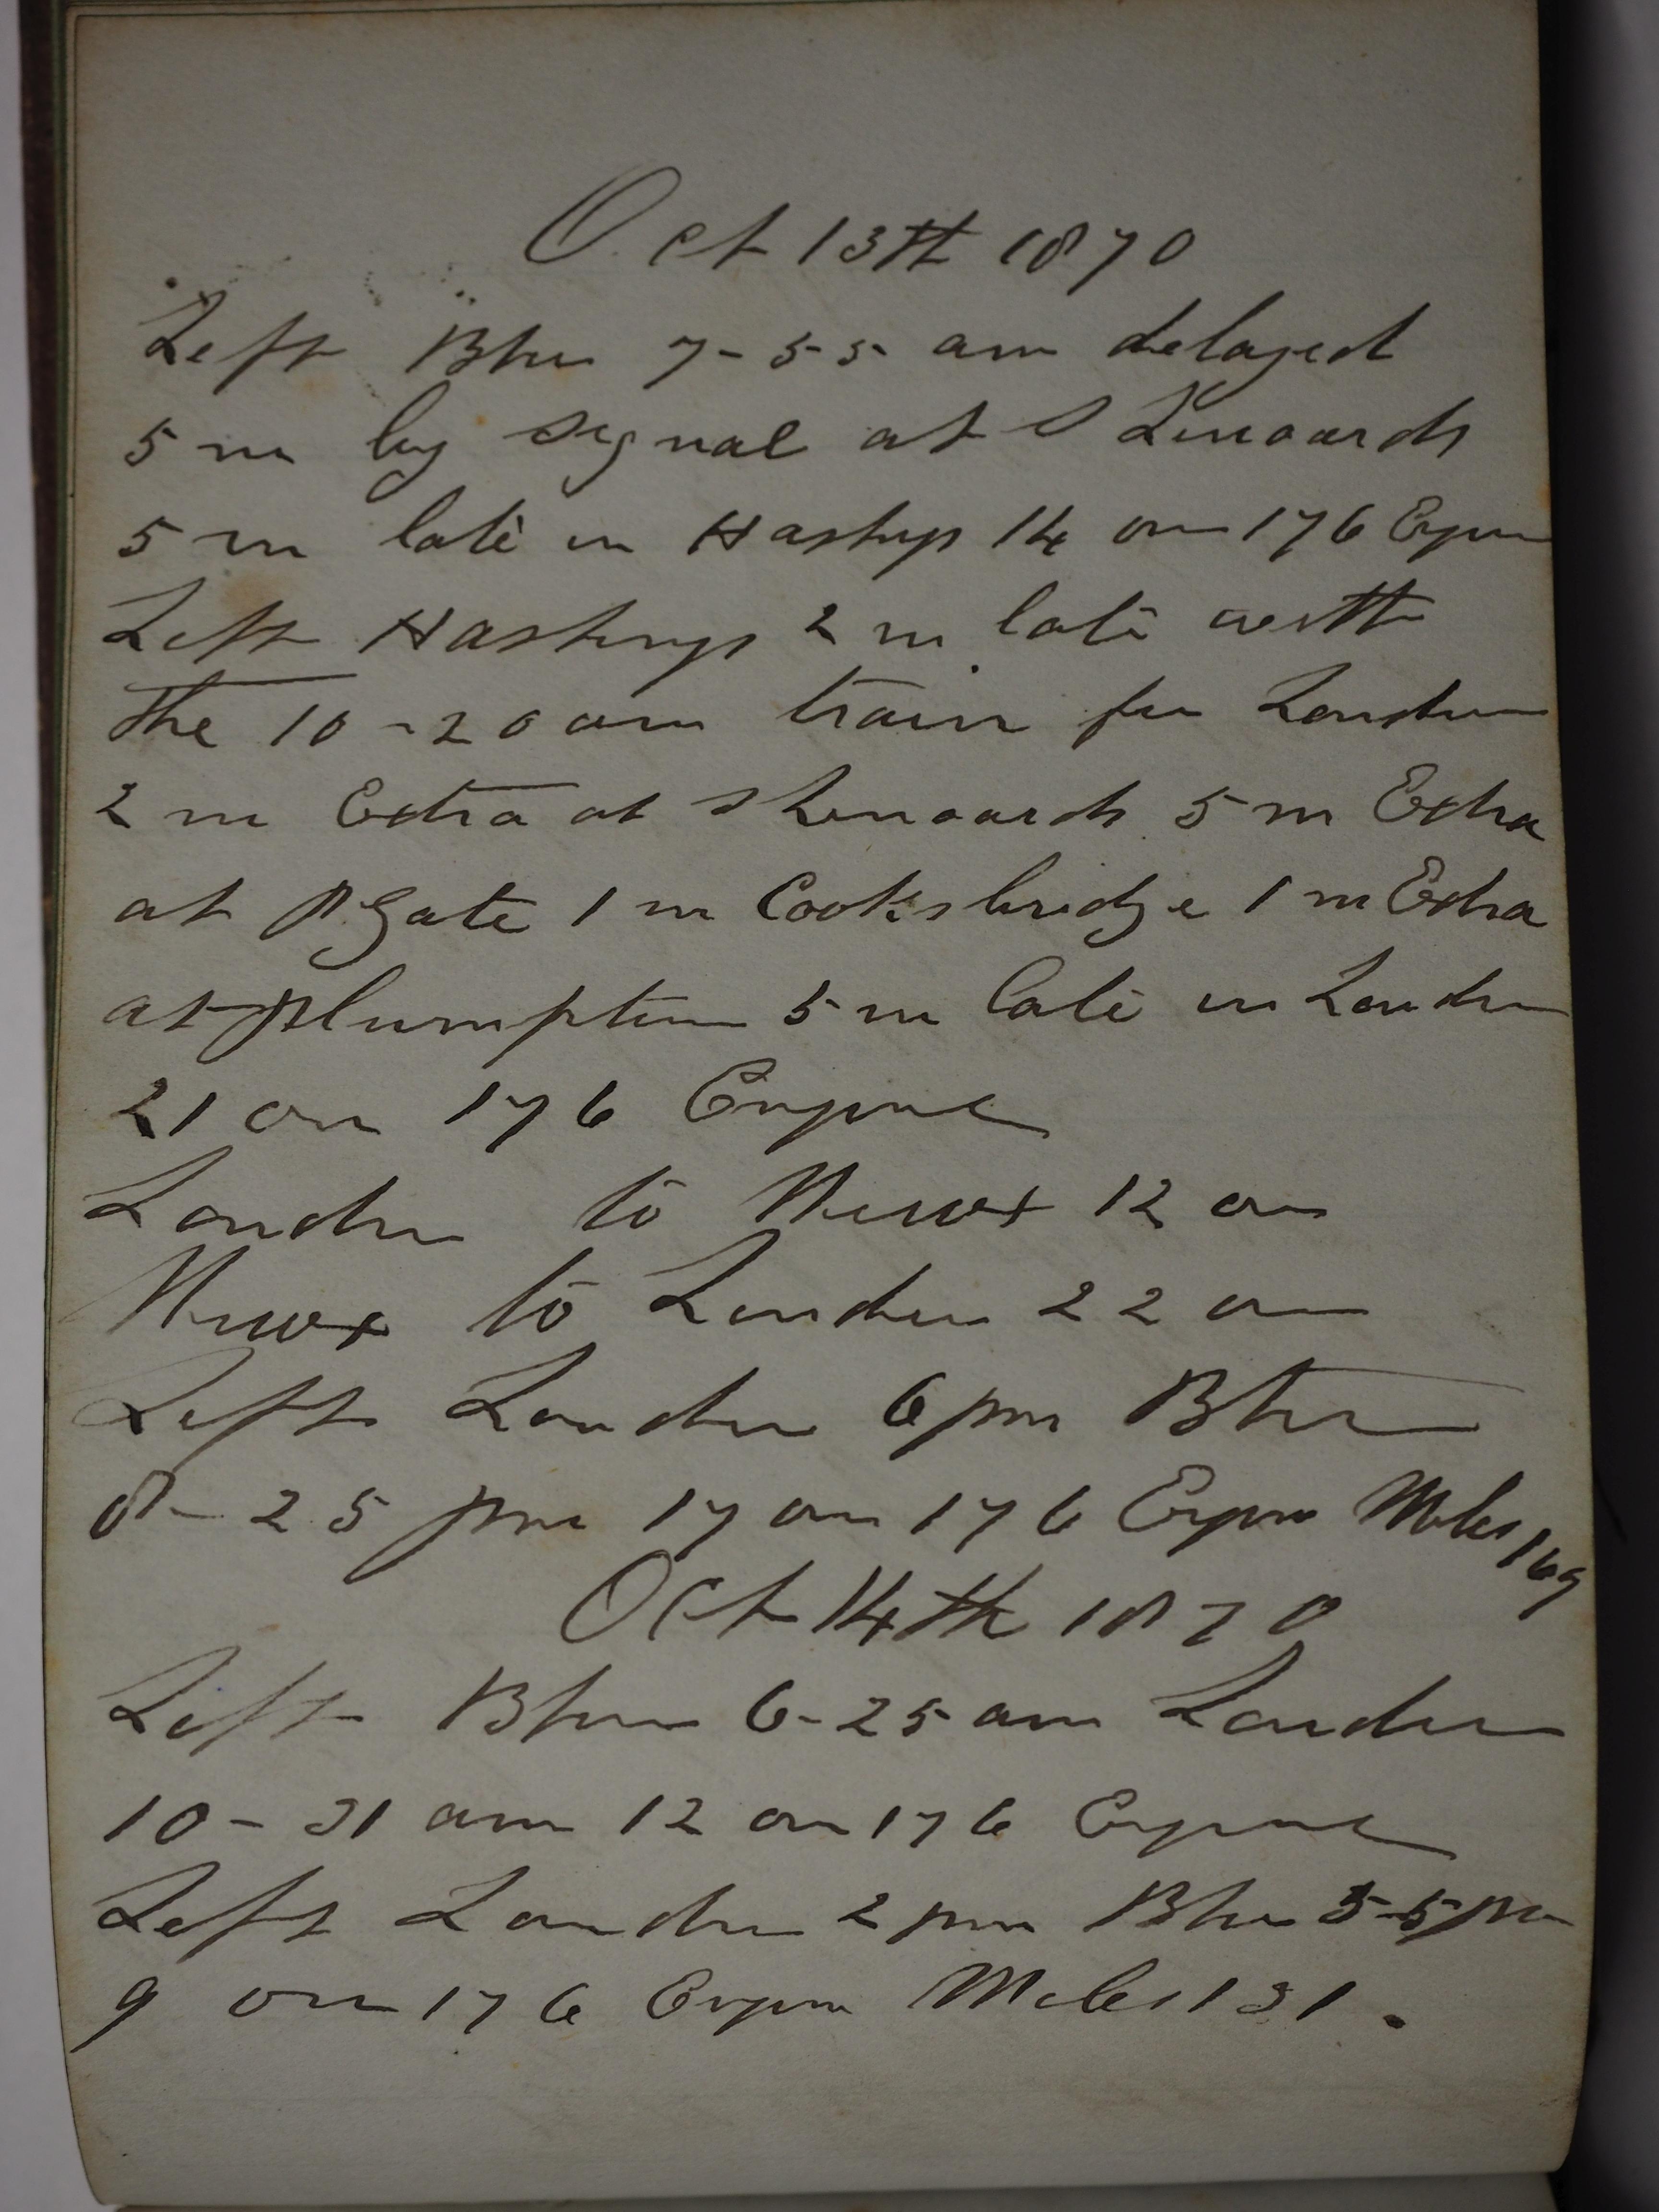 Oct 13th 1870
Left Btn 7-55 am delayed
5 m by signal at S Lenoards
5 m late in Hastings 14 on 176 Engine
Left Hastings 2 m late with
the 10-20 am train for London
2 m Extra at S Lenoards 5 m Extra
at PGate 1 m Cooksbridge 1 m Extra
at Plumpton 5 m late in London
21 on 176 Engine
London to Newx 12 on
Newx to London 22 on
Left London 6 pm Btn
8-25 pm 17 on 176 Engine Miles 169
Oct 14th 1870
Left Btn 6-25 am London
10-31 am 12 on 176 Engine
Left London 2 pm Btn 5-5 pm
9 on 176 Engine Miles 131.